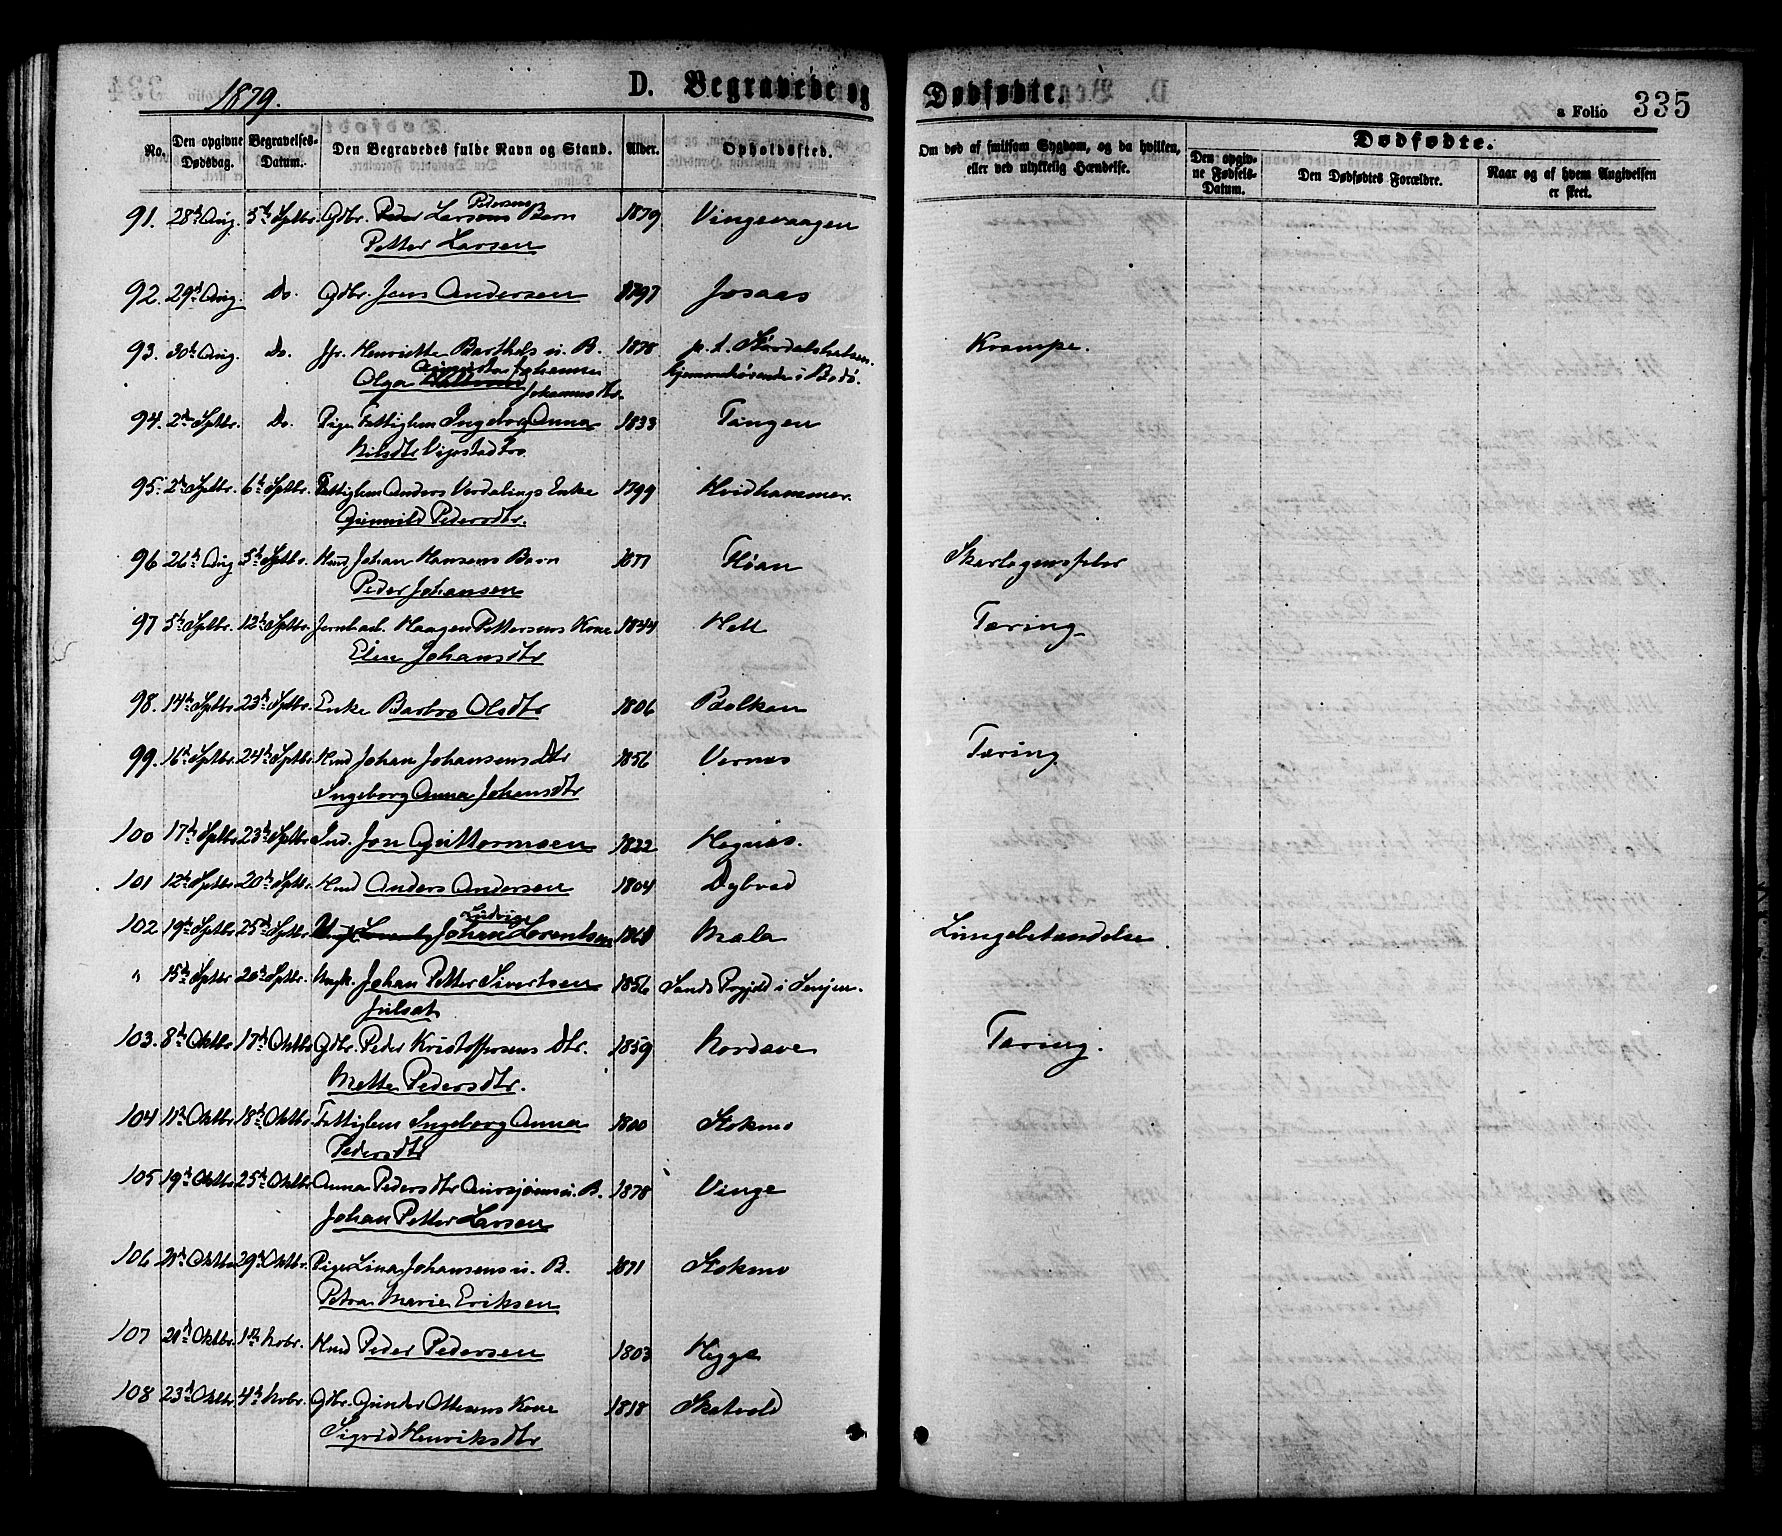 1879.
D. Begravede og Dødfødte.
a Folio 335
No.
Den opgivne Dødsdag.
Begravelses-Datum.
Den Begravedes fulde Navn og Stand.
Alder.
Opholdssted.
Om død af smitsom Sygdom, og da hvilken, eller ved ulykkelig Hændelse.
Dødfødte.
Den opgivne Fødsels-Datum.
Den Dødfødtes Forældre.
Naar og af hvem Angivelsen er skeet.
91. 28de Aug. 5te Sptbr. Gdbr. Peder Larsens Barn 1879 Vingevaagen
Petersens
Petter Larsen
92. 29de Aug. Do. Gdbr. Jens Andersen 1797 Josaas
93. 30te Aug. Do. Henriette Barthels u. B. 1878 p. t. Størdalshalsen Krampe.
Olga Johanna hjemmehørende i Bodø.
Johannesdtr.
94. 2den Sptbr. Do. Pige Fattiglem Ingeborg Anna 1833 Tangen
Nilsdtr
95. 2den Sptbr. 6te Sptbr. Fattiglem Anders Verdalings Enke 1799 Hvidhammer.
Gunnild Pedersdtr.
96 26de Aug 5te Sptbr. Hmd Johan Hansens Barn 1877 Fløan Skarlagensfeber
Peder Johansen
97 5te Sptbr. 12te Sptbr. Jernbarb. Haagen Pettersens Kone 1844 Hell Tæring
Elen Johansdtr
98. 14de Sptbr 23de Sptbr. Enke Barbro Olsdtr 1806 Balkan
99. 16de Sptbr. 24de Sptbr. Hmd Johan Johansens Dtr 1856 Vernes Tæring
Ingeborg Anna Johansdtr
100 17de Sptbr 23de Sptbr Ind. Jon Guttormsen 1822 Hognes.
101 12te Sptbr 20de Sptbr. Hmd Anders Andersen 1804 Dybvad
102 19de Sptbr 25de Sptbr Johan Lorentsen 1868 Mæla Lungebetændelse
Ludvig
" 15de Sptbr 20de Sptbr. Ungk. Johan Petter Sivertsen 1856 Sands Prgjeld i Senjen.
Julsat
103. 8de Oktbr. 17de Oktbr Gdbr. Peder Kristoffersens Dtr. 1859 Nordave Tæring.
Mette Pedersdtr.
104 11te Oktbr 18de Oktbr Fattiglem Ingeborg Anna 1800 Stokmo
Pedersdtr
105 19de Oktbr 25de Oktbr Anna Pedersdtr Aunsjøens u. B. 1878 Vinge
Johan Petter Larsen
106 21de Oktbr 29de Oktbr. Pige Lina Johansens u. B. 1871 Stokmo
Petra Marie Eriksen
107 21de Oktbr. 1ste Novbr. Hmd Peder Pedersen 1803 Hegge
108 23de Oktbr 4de Novbr. Gdbr. Gunder Ottesens Kone 1818 Skatvold
Sigrid Henriksdtr